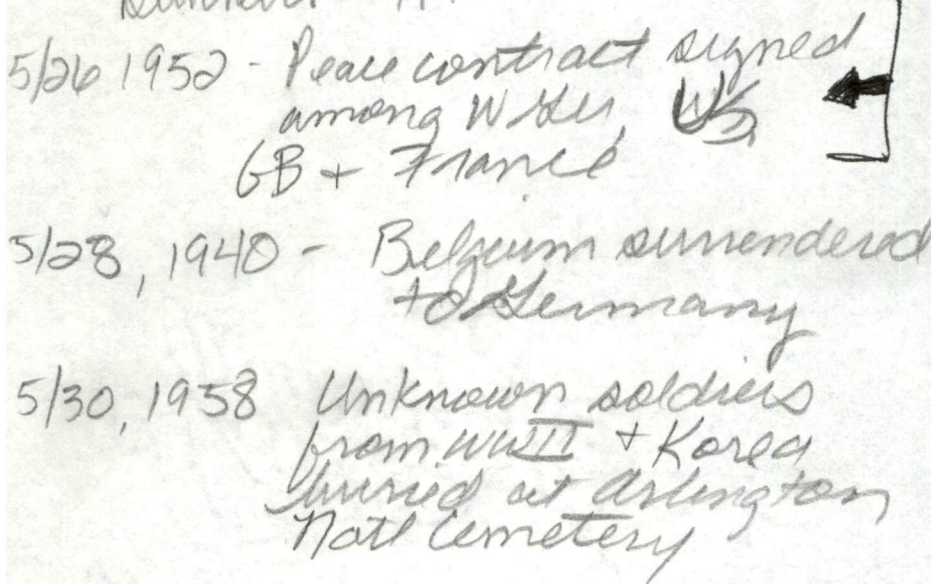 5/26 1952 - Peace contract signed
among W Ger, US,
GB + France
5/28, 1940 - Belgium surrendered
to Germany
5/30, 1958 Unknown soldiers
from WWII + Korea
buried at Arlington
Natl Cemetery